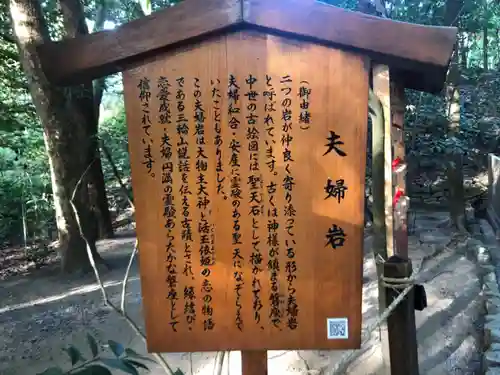 夫婦岩
(御由緒)
二つの岩が仲良く寄り添っている形から夫婦岩
と呼ばれています。古くは神様が鎮まる磐座で、
中世の古絵図には聖天石として描かれており、
夫婦和合・安産に霊験のある聖天になぞらえ
たこともありました。
この夫婦岩は大物主大神と活玉依姫の恋の物語
である三輪山説話を伝える古蹟とされ、縁結び・
恋愛成就・夫婦円満の霊験あらたかな磐座として
信仰されています。